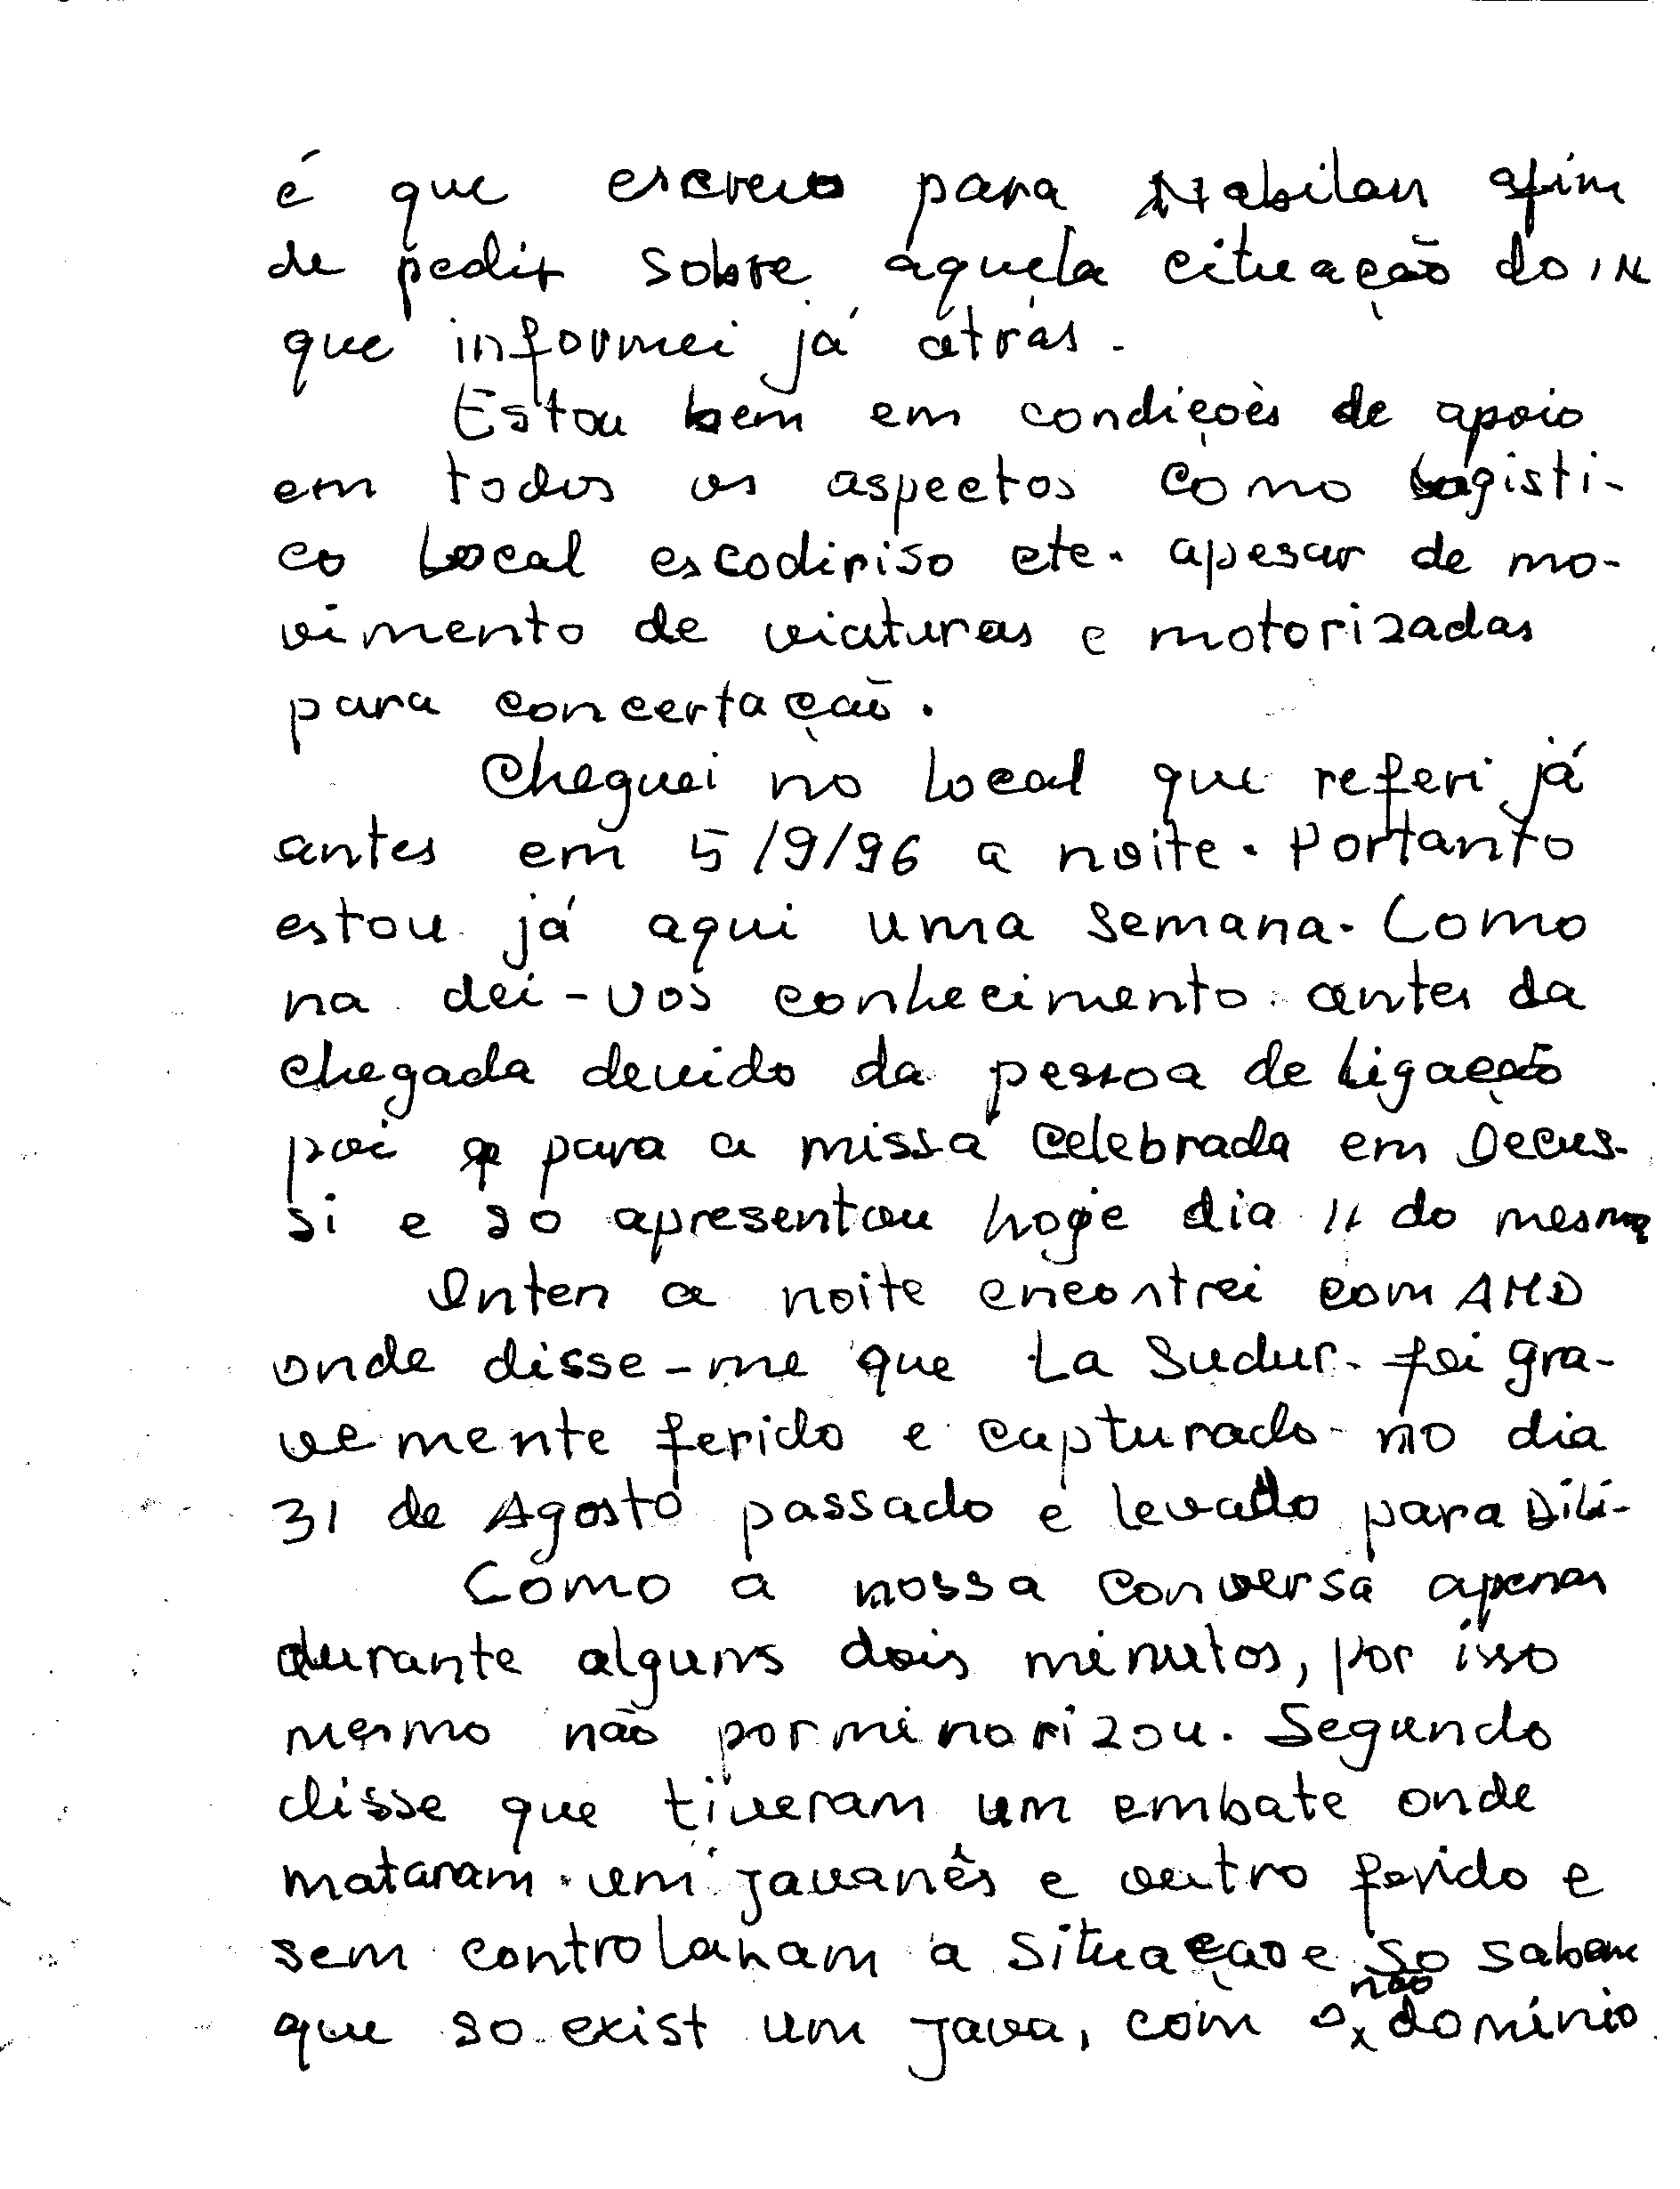 é que escrevo para Nabilan afim
de pedir sobre aquela cituação do IN
que informei já atrás.
Estou bem em condições de apoio
em todos os aspectos como logisti-
co local escodiriso etc. apesar de mo-
vimento de viaturas e motorizadas
para concertação.
Cheguei no local que referi já
antes em 5/9/96 a noite. Portanto
estou já aqui uma semana. Como
na dei-vos conhecimento antes da
chegada devido da pessoa de ligação
poi para a missa celebrada em Oecus-
si e so apresentou hoge dia 11 do mesmo
Onten a noite encontrei com AMD
onde disse-me que La Sudur foi gra-
vemente ferido e capturado no dia
31 de Agosto passado e levado para Dili-
Como a nossa conversa apenas
durante alguns dois minutos, por isso
mesmo não porminorizou. Segundo
disse que tiveram um embate onde
mataram um javanês e outro ferido e
sem controlaram a situação e so sabem
que so exist um java, com o não dominio